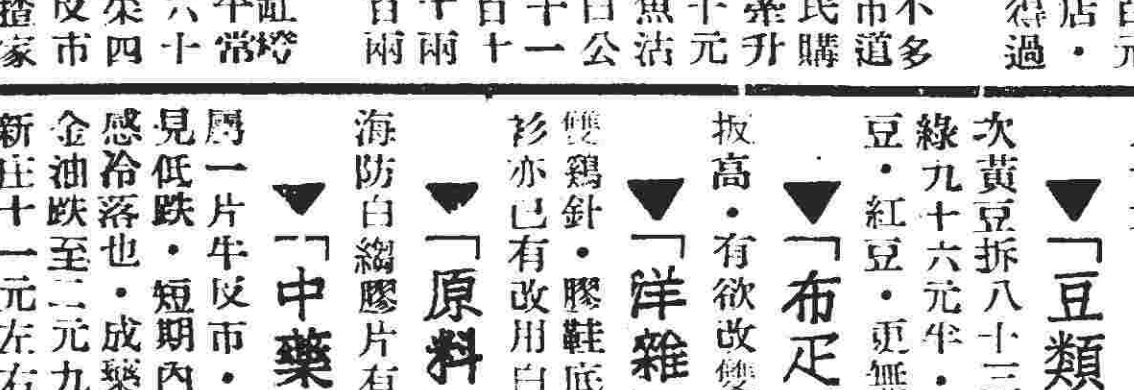 百元
店・
得過
不多
市道
民購
桨升
十元
魚沽
白公
十一
百十
十兩
百兩
缸燈
牛常
六十
柴四
皮市
揸家
▼「豆類
次黃豆拆八十三
綠九十六元半・
豆・紅豆・更無
▼「布疋
扳高・有欲改雙
▼「洋雜
雙鷄針・膠鞋底
衫亦已有改用白
▼「原料
海防白縐膠片有
▼「中藥
屬一片牛皮市・
見低跌・短期內
感冷落也・成藥
金油跌至二元九
新庄十一元左右